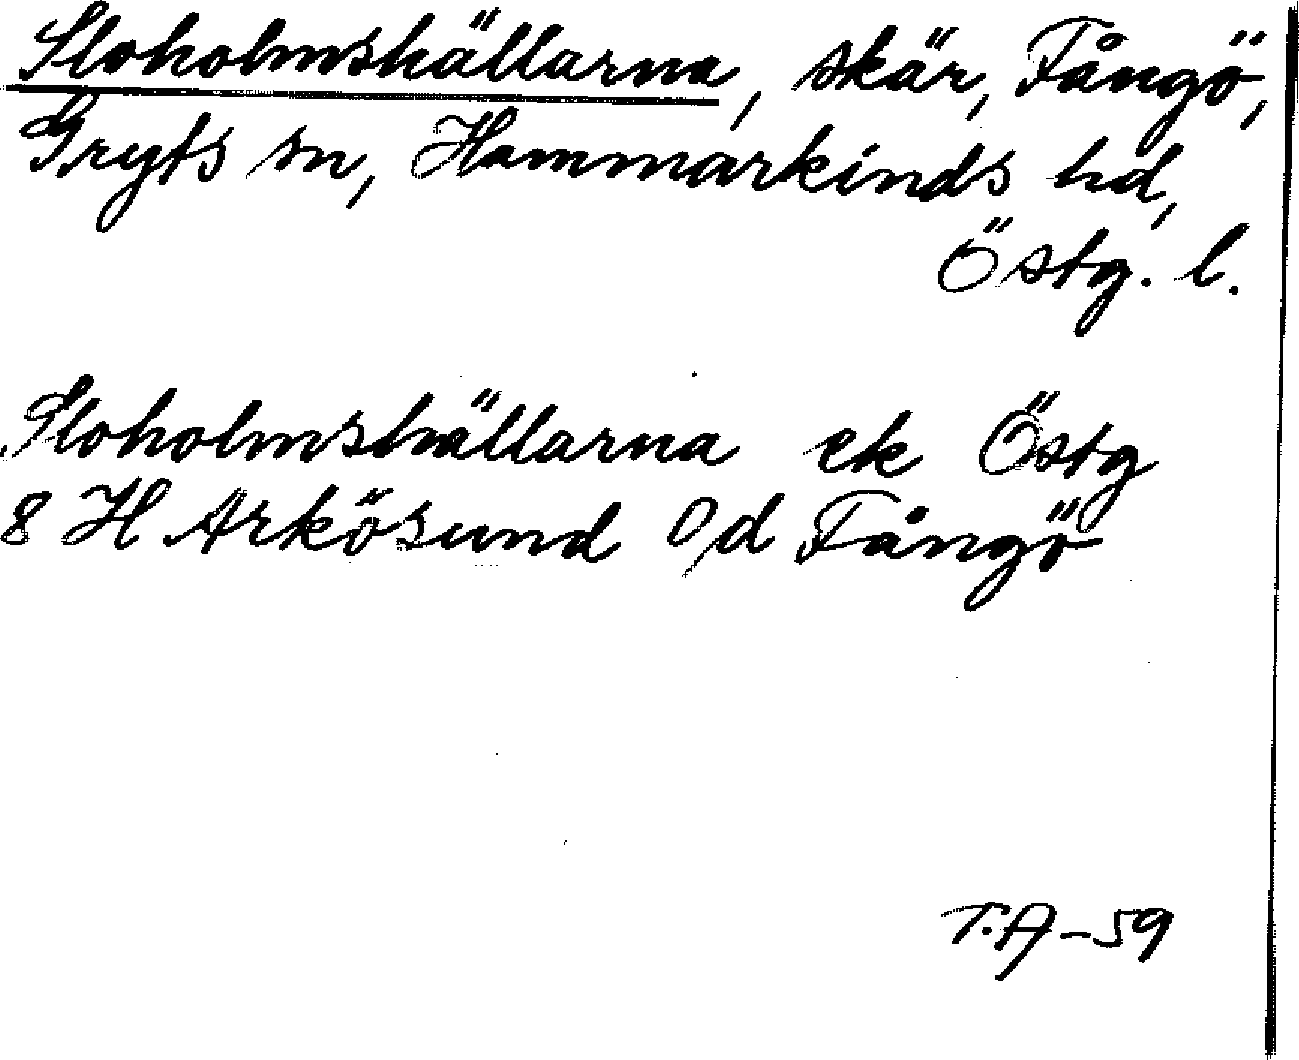 Sloholmshällarna, skär, Fångö,
Gryts sn, Hammarkinds hd,
Östg. l.
Sloholmshällarna ek Östg
8 H Arkösund O/d Fångö
T.A-59